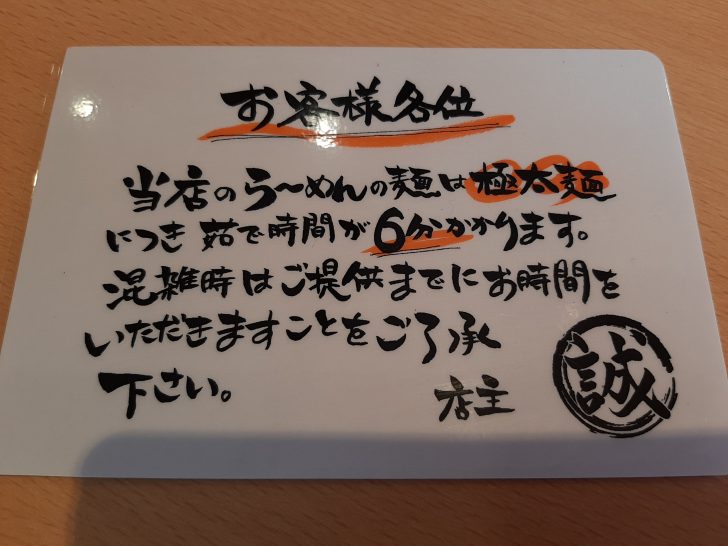 お客様各位
当店のら〜めんの麺は極太麺
につき茹で時間が6分かかります。
混雑時はご提供までにお時間を
いただきますことをご了承
下さい。
店主
誠